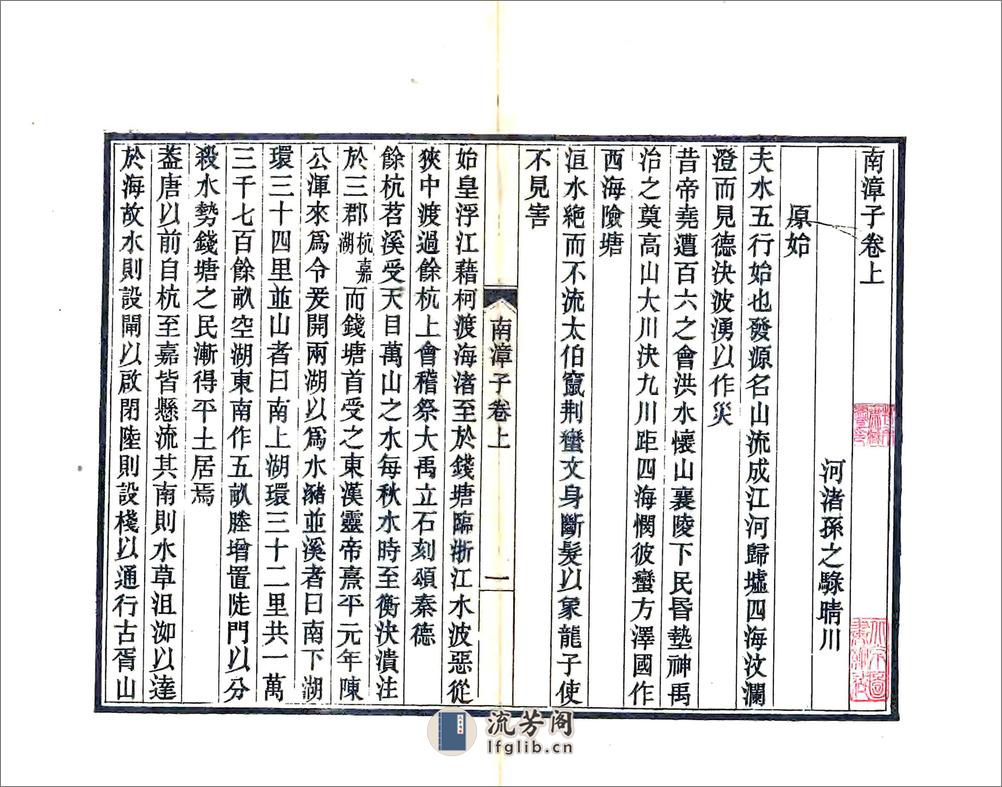 南漳子卷上
河渚孫之騄晴川
原始
夫水五行始也發源名山流成江河歸墟四海汶瀾
澄而見德決波湧以作災
昔帝堯遭百六之會洪水懷山襄陵下民昏墊神禹
治之奠高山大川決九川距四海憫彼蠻方澤國作
西海險塘
洹水絕而不流太伯竄荆蠻文身斷髮以象龍子使
不見害
南漳子卷上
一
始皇浮江藉柯渡海渚至於錢塘臨浙江水波惡從
狹中渡過餘杭上會稽祭大禹立石刻頌秦德
餘杭苕溪受天目萬山之水每秋水時至衡決潰注
於三郡杭嘉湖而錢塘首受之東漢靈帝熹平元年陳
公渾來爲令爰開兩湖以爲水豬並溪者曰南下湖
環三十四里並山者曰南上湖環三十二里共一萬
三千七百餘畝空湖東南作五畝塍增置陡門以分
殺水勢錢塘之民漸得平土居焉
葢唐以前自杭至嘉皆懸流其南則水草沮洳以達
於海故水則設閘以啟閉陸則設棧以通行古胥山
流芳阁
lfglib.cn